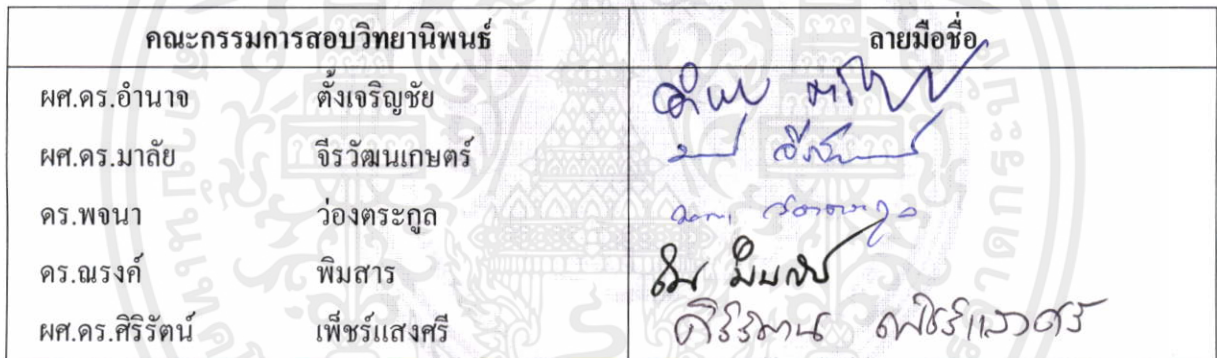 คณะกรรมการสอบวิทยานิพนธ์ ลายมือชื่อ
ผศ.ดร.อำนาจ ตั้งเจริญชัย
ผศ.ดร.มาลัย จีรวัฒนเกษตร์
ดร.พจนา ว่องตระกูล
ดร.ณรงค์ พิมสาร
ผศ.ดร.ศิริรัตน์ เพ็ชร์แสงศรี